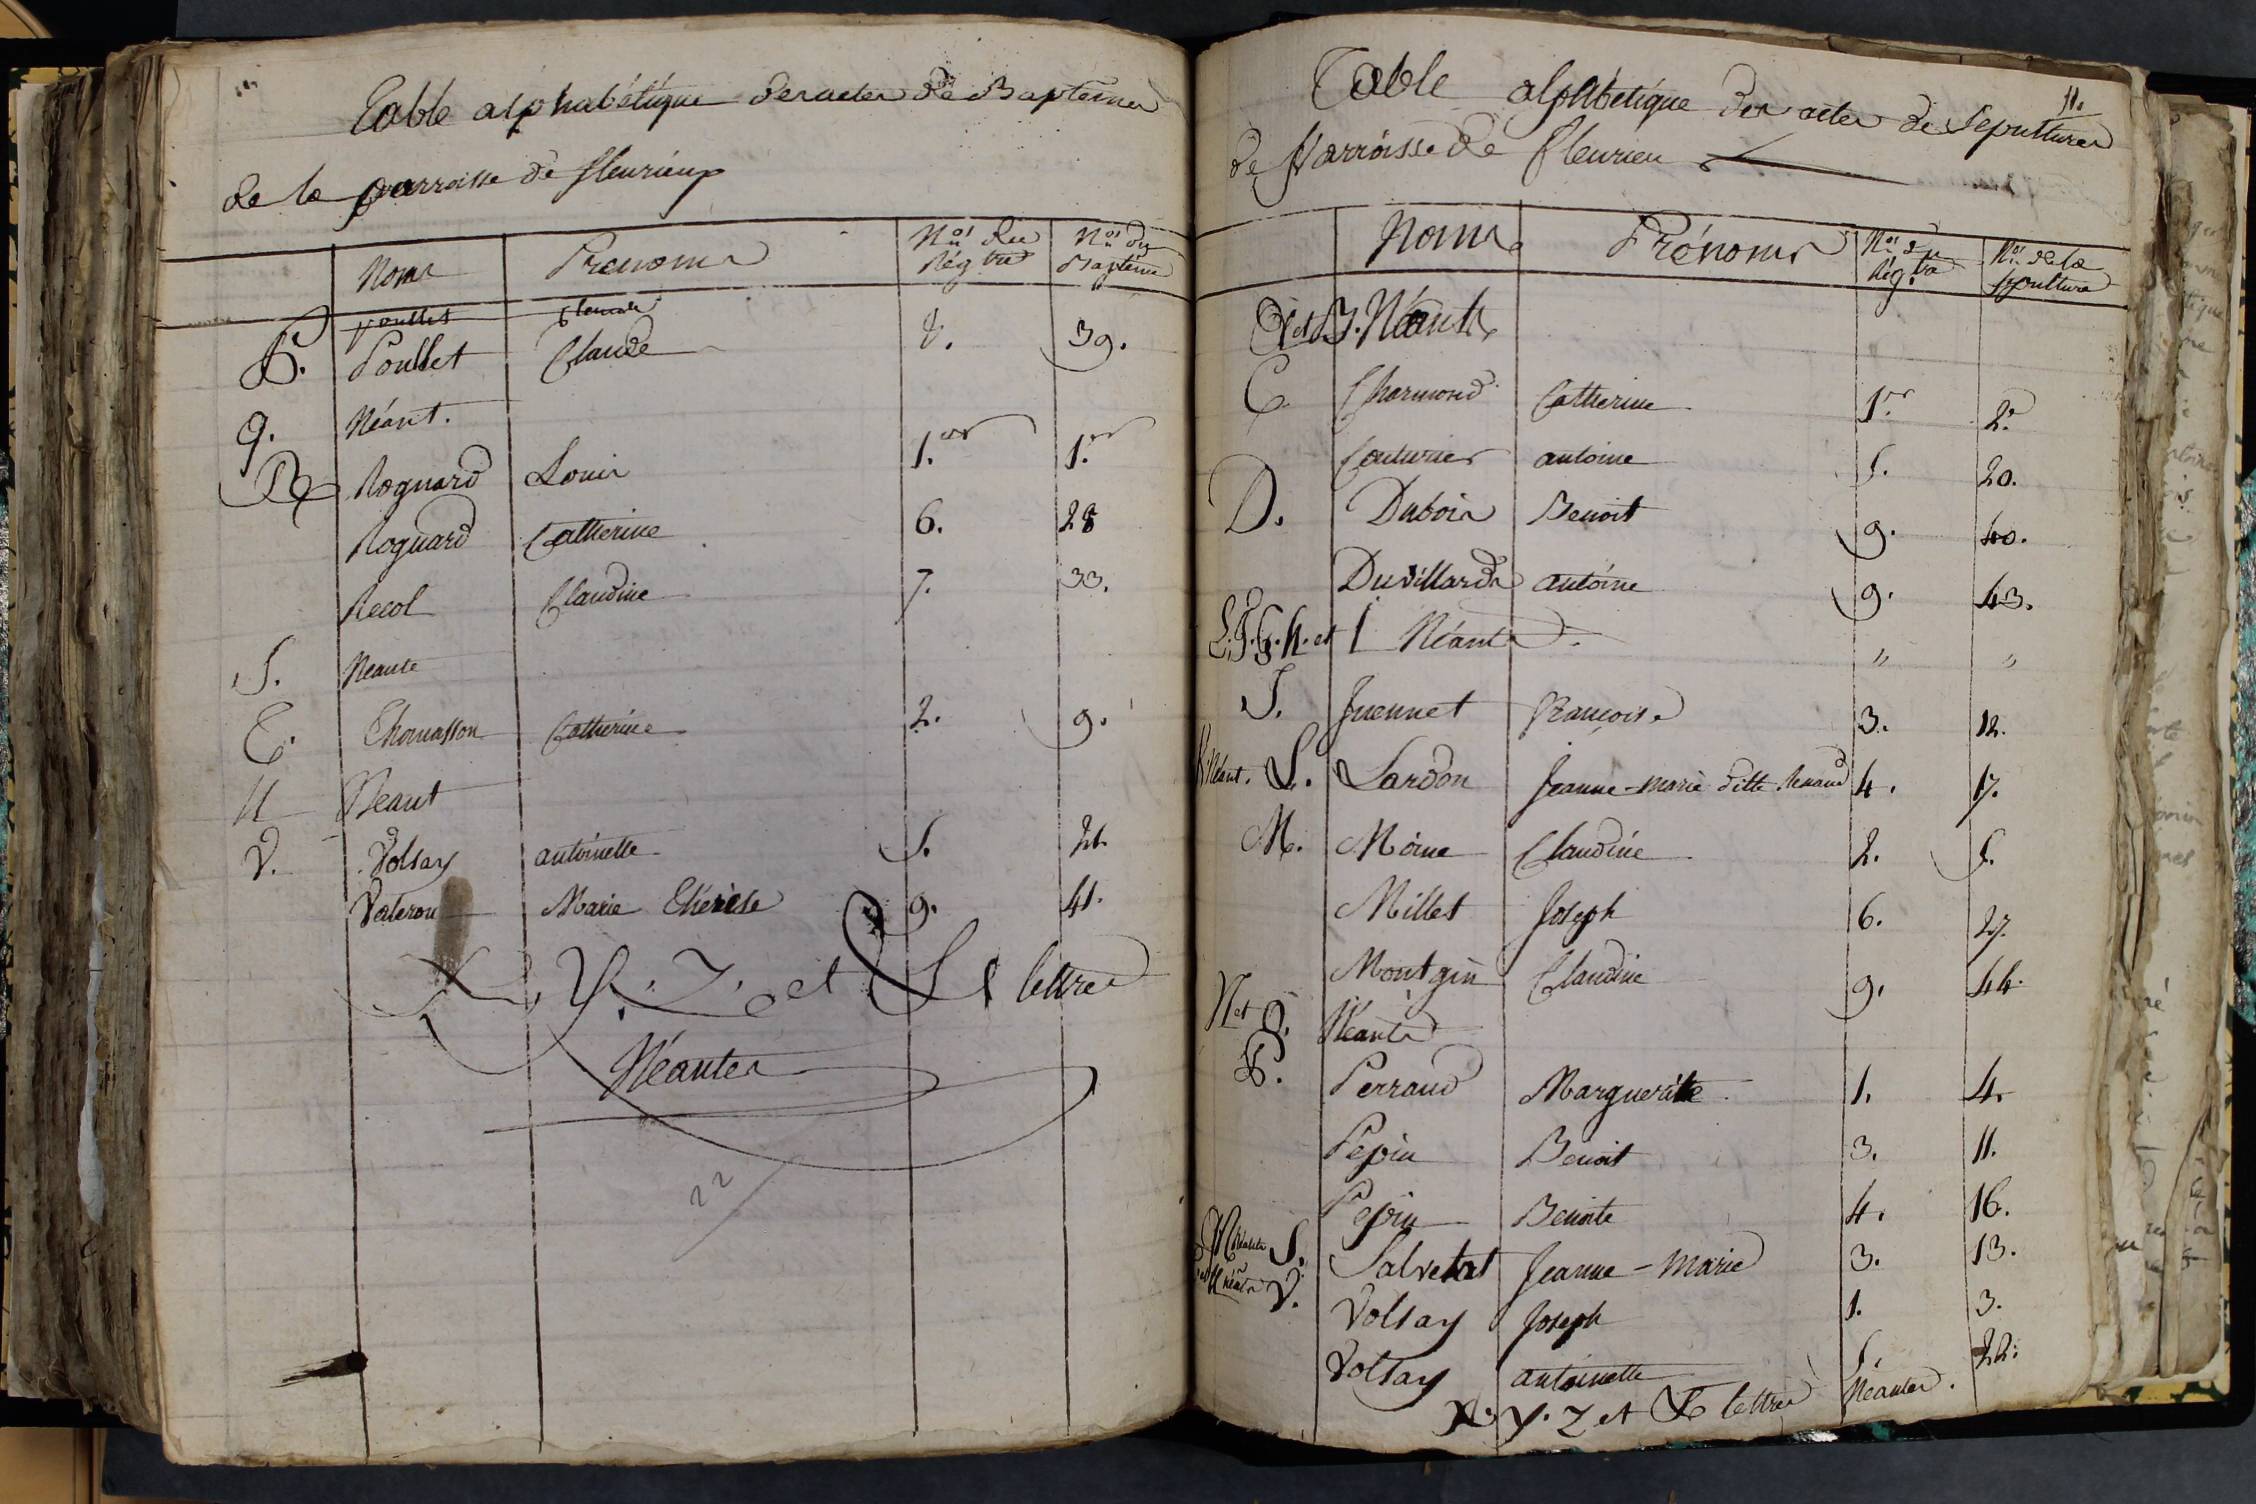 Table alphabétique des actes de Baptêmes
de la parroisse de fleurieux
Noms Prenoms Nos du Régtre Nos du Baptême
Poullet Claude
P. Poullet Claude 8. 39.
q. Néant.
R Rognard Louis 1.er 1.er
Rognard Catherine 6. 28
Recol Claudine 7. 33.
S. Neante
T. Thomasson Catherine 2. 9.
U Neant
V. Volsay antoinette 5. 21.
Valerou Marie Thérèse 9. 41.
X. Y. Z. et & lettres
Néantes
22
11.
Table alphbétique des actes de Sépultures
de Parroisse de fleurieu
Noms Prénoms Nos du Régtre Nos de la sépulture
A et B. Néants
C Charmond Catherine 1.er 2.e
Couturier antoine 5. 20.
D. Dubois Benoit 9. 40.
Duvillards antoine 9. 43.
E. F. G. h. et I Néants. " "
J. Juennet françoise 3. 12.
K Néant. L. Lardon Jeanne-Marie ditte Renaud 4. 17.
M. Moine Claudine 2. 5.
Millet Joseph 6. 27.
Montgin Claudine 9. 44.
N et O. Néants
P. Perraud Marguerite 1. 4.
Pepin Benoit 3. 11.
Pepin Benoite 4. 16.
S. Salvetat Jeanne-Marie 3. 13.
V. Volsay Joseph 1. 3.
Volsay antoinette 5. 22.
X. Y. Z et & lettres Néantes.